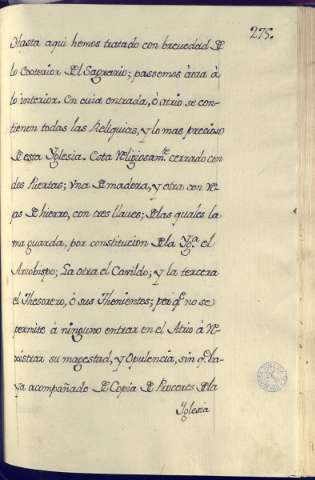 275.
Hasta aqui hemos tratado con breuedad de
lo Exoterior del Sagrario; passemos aora à
lo interior. En cuia entrada, ò atrio se con-
tienen todas las Reliquias, y lo mas precioso
de esta Yglesia. Esta Religiosam.te cerrado con
dos Puertas; vna de madera, y otra con re-
jas de hierro, con tres llaues; de las quales la
vna guarda, por constitucion de la Yg.a el
Arzobispo; La otra el Cavildo; y la tercera
el Thesorero, ò sus Thenientes; por q.e no se
permite à ninguno entrar en el Atrio à re-
xistrar su magestad, y Opulencia, sin q.e ba-
ya acompañado de Copia de Proceres de la
Yglesia